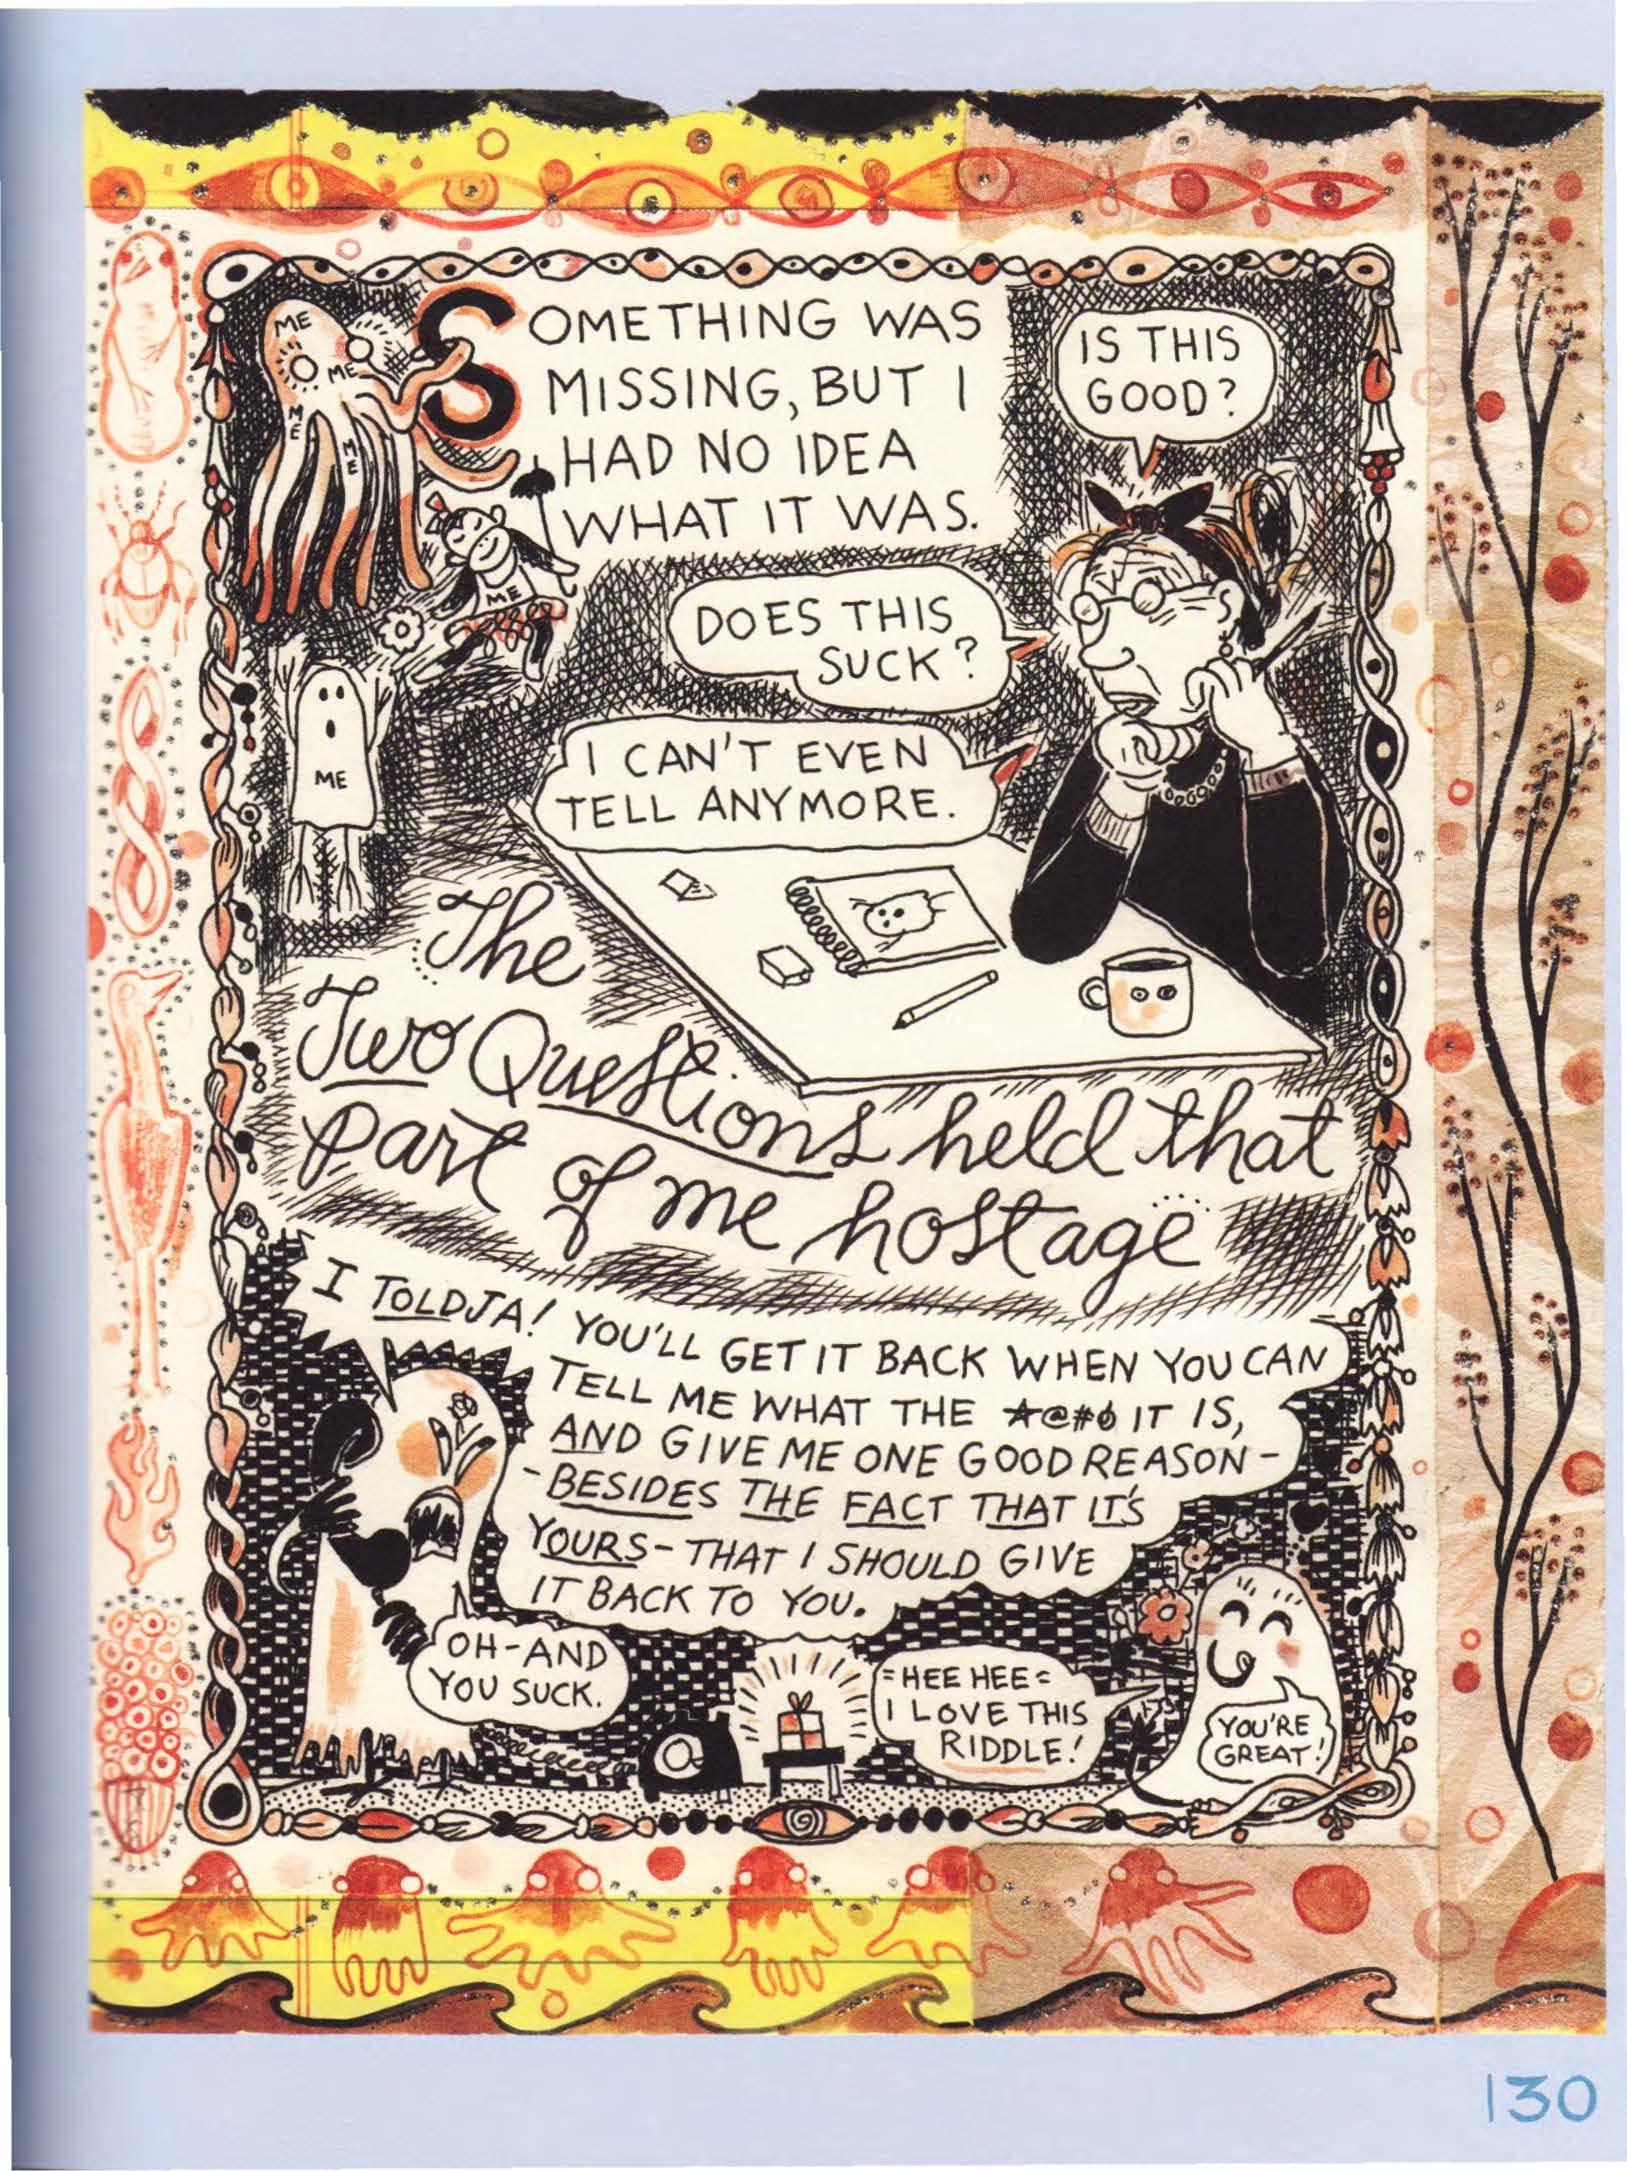 ME
ME
ME
ME
SOMETHING WAS
MISSING, BUT I
HAD NO IDEA
WHAT IT WAS.
IS THIS
GOOD?
ME
DOES THIS
SUCK?
ME
I CAN'T EVEN
TELL ANYMORE.
The
Two Questions held that
part of me hostage
I TOLDJA! YOU'LL GET IT BACK WHEN YOU CAN
TELL ME WHAT THE *@#¢ IT IS,
AND GIVE ME ONE GOOD REASON-
-BESIDES THE FACT THAT IT'S
YOURS-THAT I SHOULD GIVE
IT BACK TO YOU.
OH-AND
YOU SUCK.
=HEE HEE=
I LOVE THIS
RIDDLE!
YOU'RE
GREAT!
130